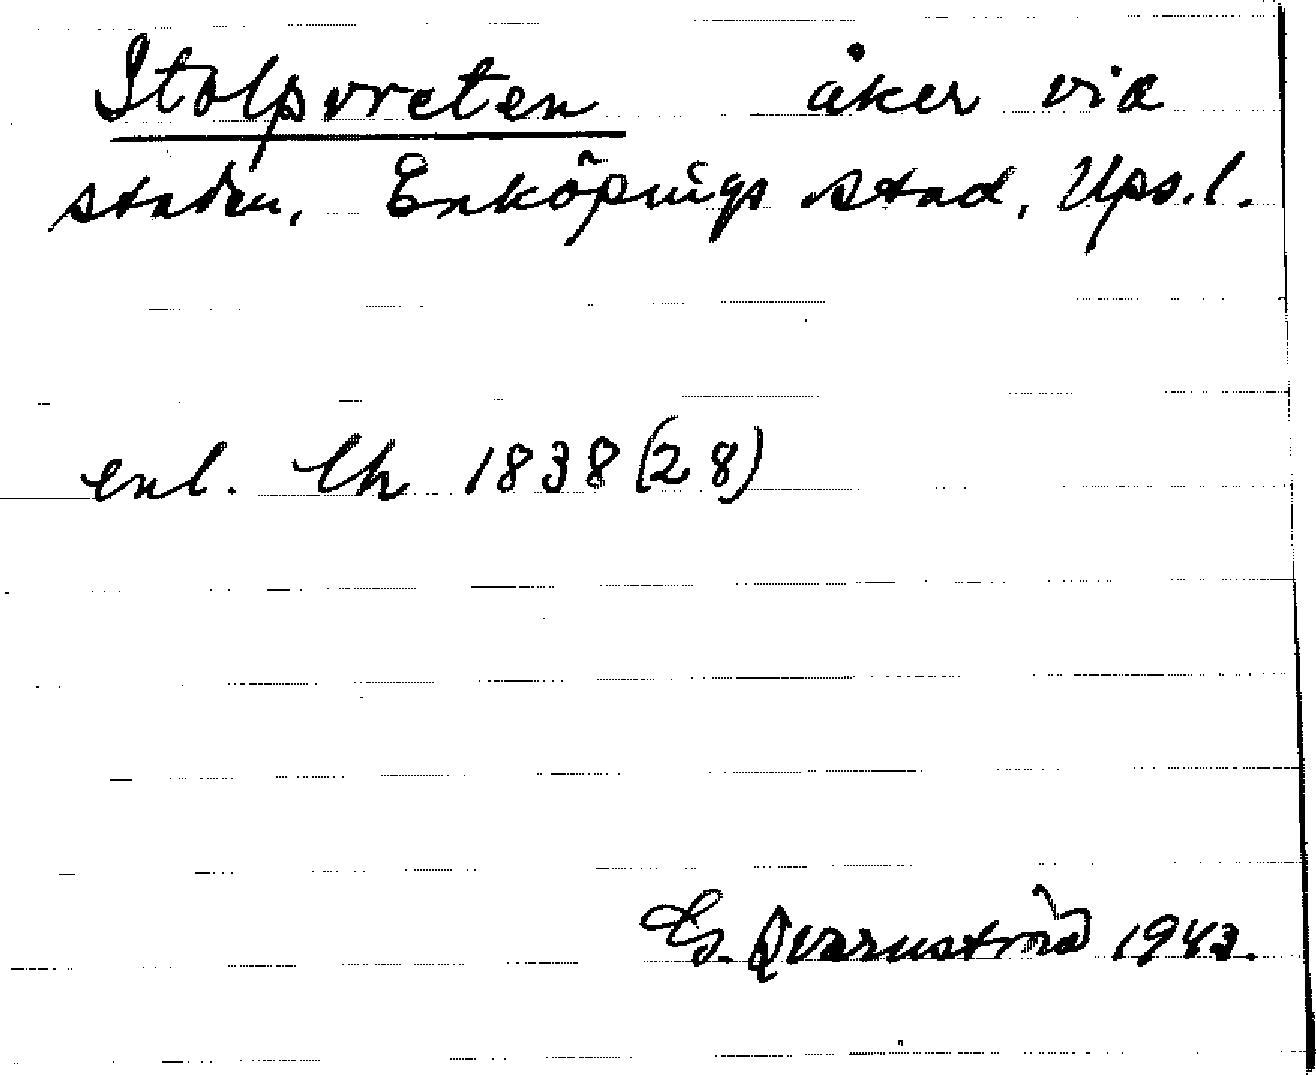 Stolpvreten åker vid
staden, Enköpings stad, Ups.l.
enl. Ch 1838 (28)
G. Qvarnström 1943.